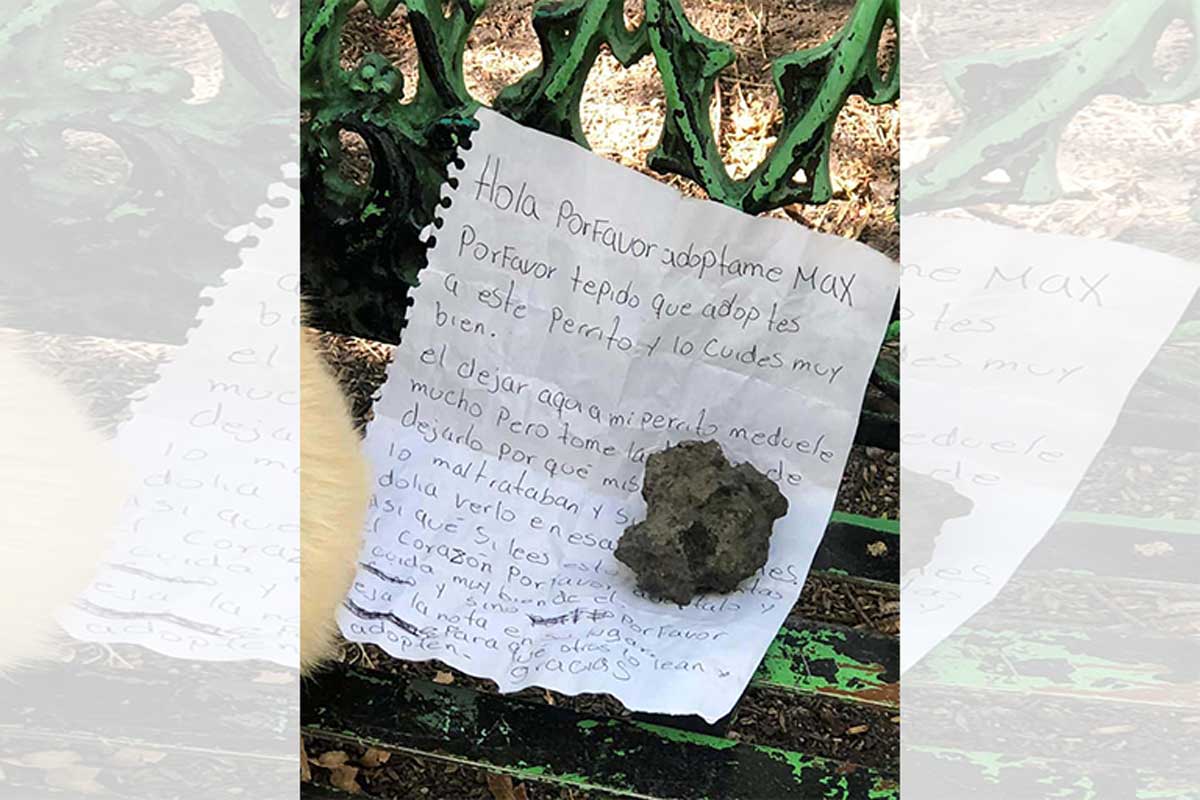 Hola PorFavor adoptame MAX
PorFavor tepido que adoptes
a este perrito y lo cuides muy
bien.
el dejar aqui a mi perrito meduele
mucho Pero tome la de
dejarlo por qué mis
lo maltrataban y
dolia verlo en esa
Asi qué si lees
corazón porfavor adoptalo y
cuida muy bien de el.
y sino PorFavor
eja la nota en su lugar
Para que otros lo lean y
adopten.
gracias